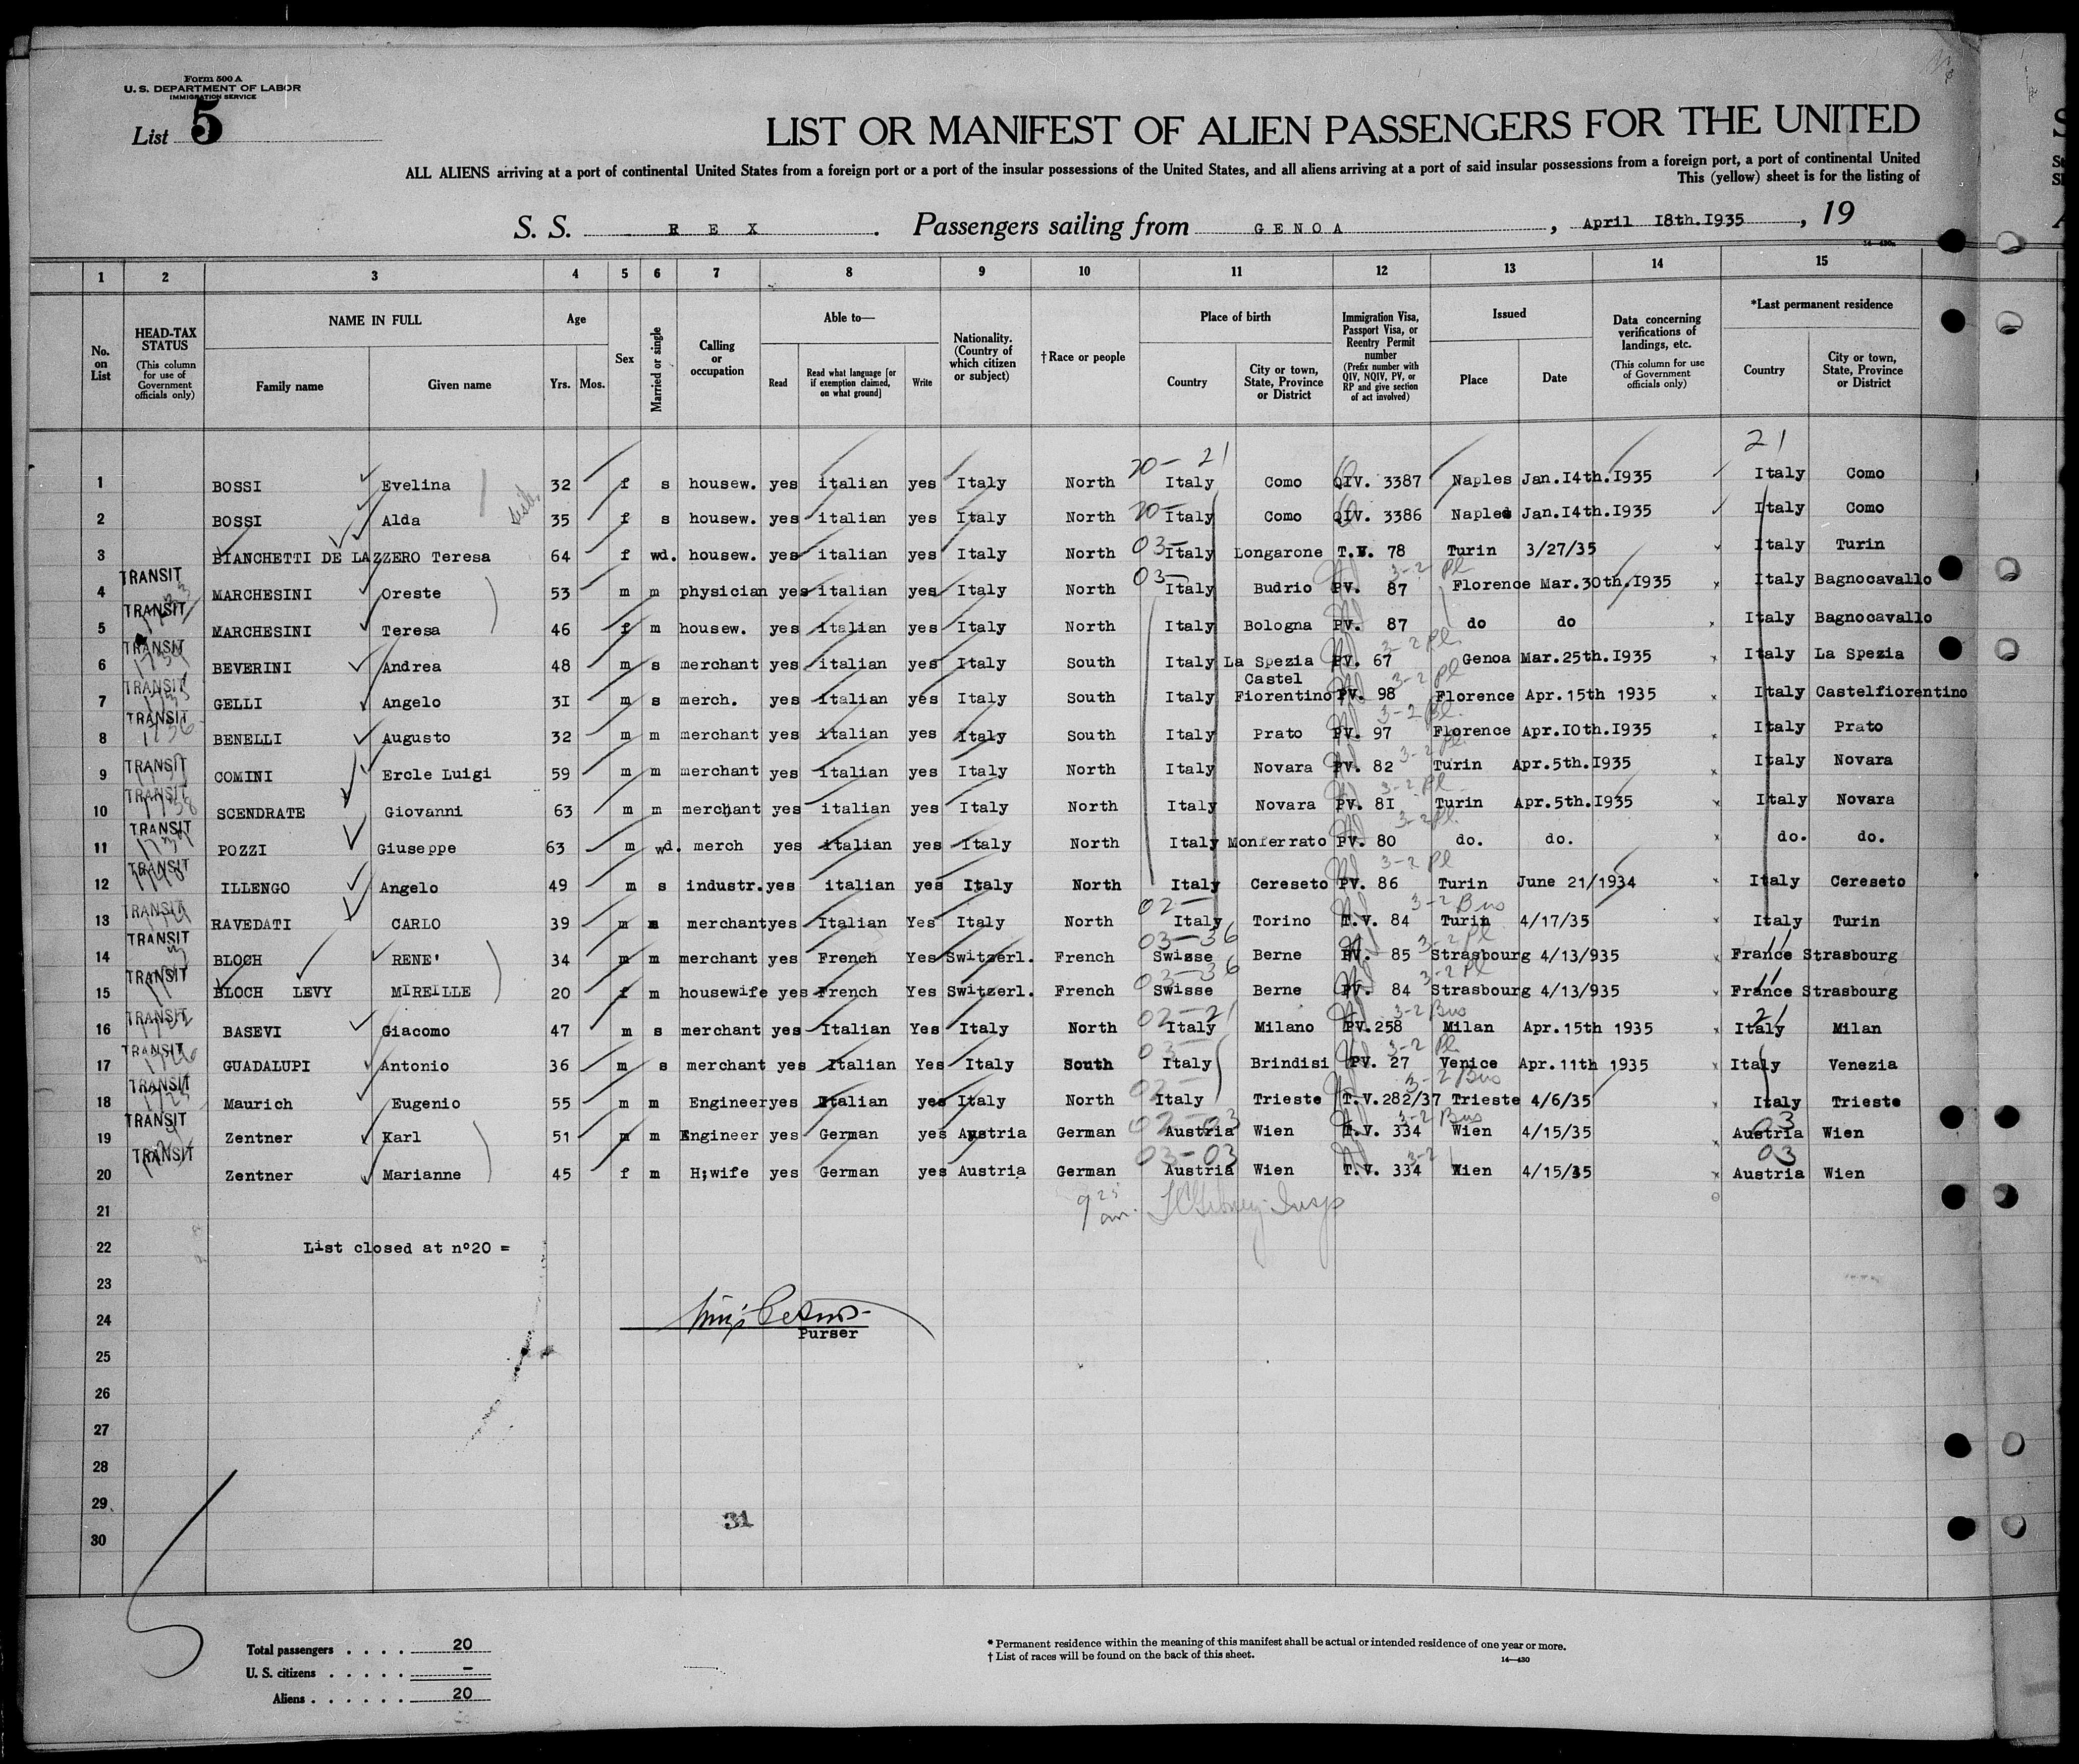 Form 500 A
U. S. DEPARTMENT OF LABOR
IMMIGRATION SERVICE
List 5
LIST OR MANIFEST OF ALIEN PASSENGERS FOR THE UNITED
ALL ALIENS arriving at a port of continental United States from a foreign port or a port of the insular possessions of the United States, and all aliens arriving at a port of said insular possessions from a foreign port, a port of continental United
This (yellow) sheet is for the listing of
S. S. R E X . Passengers sailing from G E N O A , April I8th.I935 , 19
1 2 3 4 5 6 7 8 9 10 11 12 13 14 15
No. on List
HEAD-TAX STATUS (This column for use of Government officials only)
NAME IN FULL
Family name Given name
Age Yrs. Mos.
Sex
Married or single
Calling or occupation
Able to— Read Read what language [or if exemption claimed, on what ground] Write
Nationality. (Country of which citizen or subject)
†Race or people
Place of birth Country City or town, State, Province or District
Immigration Visa, Passport Visa, or Reentry Permit number (Prefix number with QIV, NQIV, PV, or RP and give section of act involved)
Issued Place Date
Data concerning verifications of landings, etc. (This column for use of Government officials only)
*Last permanent residence Country City or town, State, Province or District
20— 21 21
1 BOSSI Evelina 32 f s housew. yes italian yes Italy North Italy Como QIV. 3387 Naples Jan.I4th.I935 Italy Como
2 BOSSI Alda 35 f s housew. yes italian yes Italy North 20— Italy Como QIV. 3386 Naples Jan.I4th.I935 Italy Como
3 BIANCHETTI DE LAZZERO Teresa 64 f wd. housew. yes italian yes Italy North 03— Italy Longarone T.V. 78 Turin 3/27/35 Italy Turin
TRANSIT 03— 3-2 Pl
4 MARCHESINI Oreste 53 m m physician yes italian yes Italy North Italy Budrio PV. 87 Florence Mar.30th.I935 Italy Bagnocavallo
TRANSIT
5 MARCHESINI Teresa 46 f m housew. yes italian yes Italy North Italy Bologna PV. 87 do do Italy Bagnocavallo
TRANSIT 3-2 Pl.
6 BEVERINI Andrea 48 m s merchant yes italian yes Italy South Italy La Spezia PV. 67 Genoa Mar.25th.I935 Italy La Spezia
TRANSIT Castel 3-2 Pl
7 GELLI Angelo 3I m s merch. yes italian yes Italy South Italy Fiorentino PV. 98 Florence Apr.15th 1935 Italy Castelfiorentino
TRANSIT 3-2 Pl.
8 BENELLI Augusto 32 m m merchant yes italian yes Italy South Italy Prato PV. 97 Florence Apr.IOth.I935 Italy Prato
TRANSIT 3-2 Pl.
9 COMINI Ercle Luigi 59 m m merchant yes italian yes Italy North Italy Novara PV. 82 Turin Apr.5th.I935 Italy Novara
TRANSIT 3-2 Pl
10 SCENDRATE Giovanni 63 m m merchant yes italian yes Italy North Italy Novara PV. 8I Turin Apr.5th.I935 Italy Novara
TRANSIT 3-2 Pl.
11 POZZI Giuseppe 63 m wd. merch yes italian yes Italy North Italy Monferrato PV. 80 do. do. do. do.
TRANSIT 3-2 Pl
12 ILLENGO Angelo 49 m s industr. yes italian yes Italy North Italy Cereseto PV. 86 Turin June 21/1934 Italy Cereseto
TRANSIT 02— 3-2 Bus
13 RAVEDATI CARLO 39 m m merchant yes Italian Yes Italy North Italy Torino T.V. 84 Turin 4/17/35 Italy Turin
TRANSIT 03—36 3-2 Pl 11
14 BLOCH RENE' 34 m m merchant yes French Yes Switzerl. French Swisse Berne PV. 85 Strasbourg 4/13/935 France Strasbourg
TRANSIT 03—36 3-2 Pl 11
15 BLOCH LEVY MIREILLE 20 f m housewife yes French Yes Switzerl. French Swisse Berne PV. 84 Strasbourg 4/13/935 France Strasbourg
TRANSIT 02—21 3-2 Bus 21
16 BASEVI Giacomo 47 m s merchant yes Italian Yes Italy North Italy Milano PV.258 Milan Apr.15th 1935 Italy Milan
TRANSIT 03— 3-2 Pl
17 GUADALUPI Antonio 36 m s merchant yes Italian Yes Italy South Italy Brindisi PV. 27 Venice Apr.11th 1935 Italy Venezia
TRANSIT 02— 3-2 Bus
18 Maurich Eugenio 55 m m Engineer yes Italian yes Italy North Italy Trieste T.V.282/37 Trieste 4/6/35 Italy Trieste
TRANSIT 02—03 3-2 Bus 03
19 Zentner Karl 51 m m Engineer yes German yes Austria German Austria Wien T.V. 334 Wien 4/15/35 Austria Wien
TRANSIT 03—03 3-2 03
20 Zentner Marianne 45 f m H;wife yes German yes Austria German Austria Wien T.V. 334 Wien 4/15/35 Austria Wien
21
22 List closed at n°20 =
23
24
Purser
25
26
27
28
29
30
31
5
Total passengers . . . . . 20
U. S. citizens . . . . . –
Aliens . . . . . . 20
* Permanent residence within the meaning of this manifest shall be actual or intended residence of one year or more.
† List of races will be found on the back of this sheet.
14—430